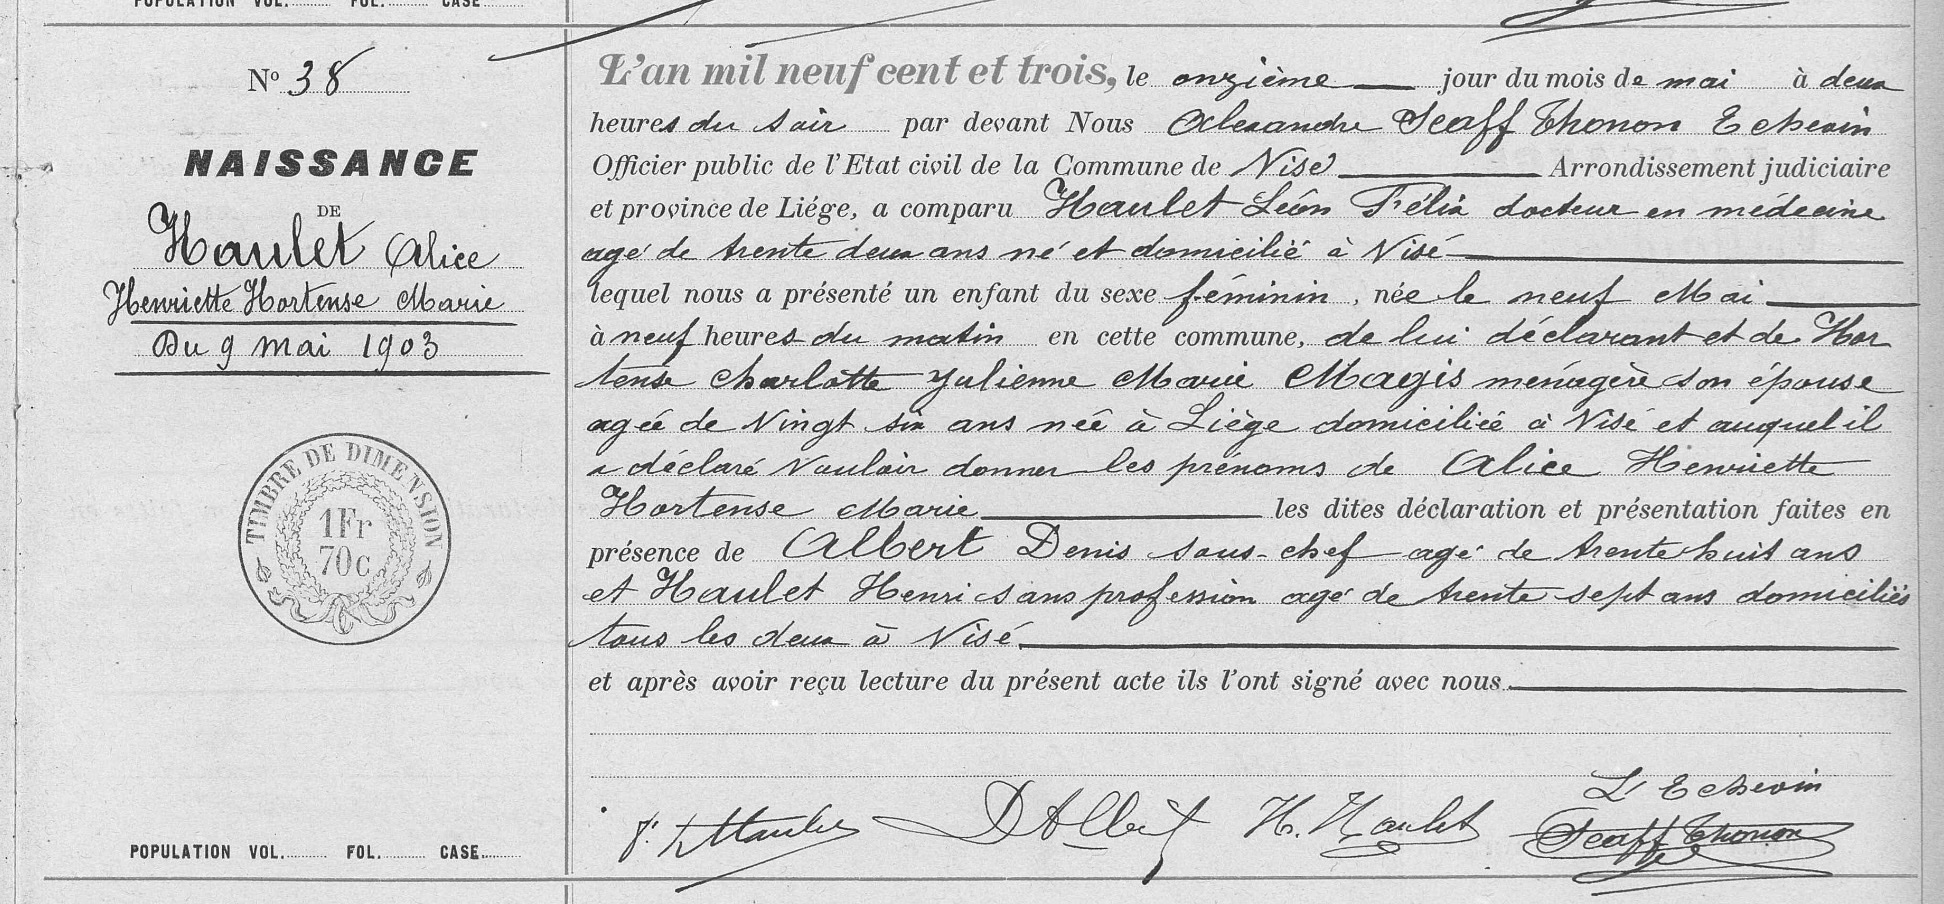 POPULATION VOL. FOL. CASE
Nº 38
NAISSANCE
DE
Haulet Alice
Henriette Hortense Marie
Du 9 mai 1903
TIMBRE DE DIMENSION
1Fr
70c
POPULATION VOL. FOL. CASE
L'an mil neuf cent et trois, le onzième jour du mois de mai à deux
heures du soir par devant Nous Alexandre Scaff Thonon Echevin
Officier public de l'Etat civil de la Commune de Visé Arrondissement judiciaire
et province de Liége, a comparu Haulet Léon Félix docteur en médecine
agé de trente deux ans né et domicilié à Visé
lequel nous a présenté un enfant du sexe féminin, née le neuf Mai
à neuf heures du matin en cette commune, de lui déclarant et de Hor
tense Charlotte Julienne Marie Magis ménagère son épouse
agée de Vingt six ans née à Liège domiciliée à Visé et auquel il
a déclaré Vouloir donner les prénoms de Alice Henriette
Hortense Marie les dites déclaration et présentation faites en
présence de Albert Denis sous-chef agé de trente huit ans
et Haulet Henri sans profession agé de trente-sept ans domiciliés
tous les deux à Visé
et après avoir reçu lecture du présent acte ils l'ont signé avec nous
L'Echevin
Haulet D Albert H. Haulet Scaff Thonon